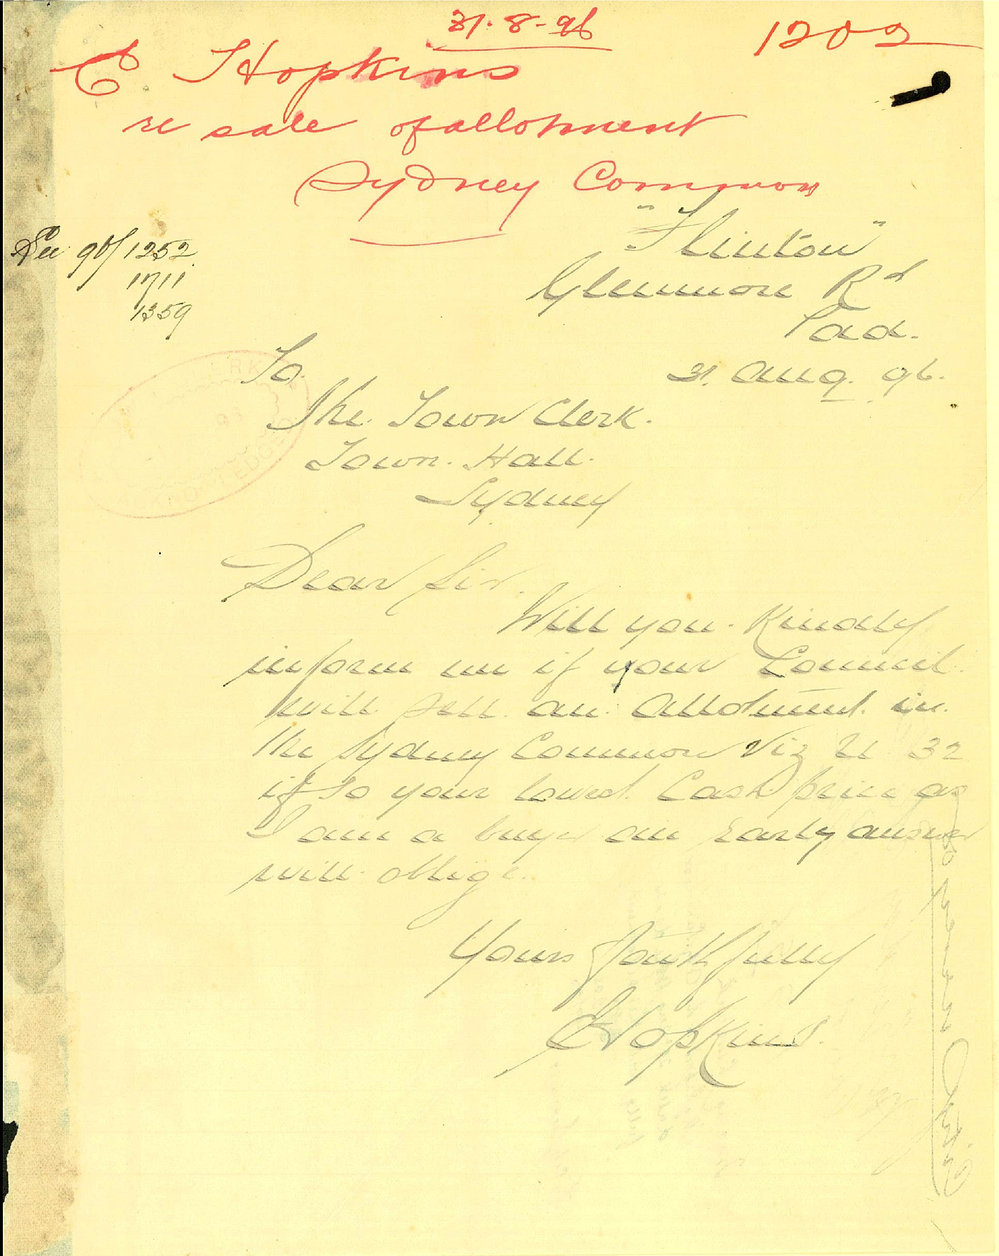 31·8·96
1202
E Hopkins
re sale of allotment
Sydney Common
See 96/1252
1711
1359
"Flinton"
Glenmore Rd
Pad.
31 Aug. 96.
To
The Town Clerk.
Town Hall.
Sydney
Dear Sir.
Will you Kindly
inform me if your Council
will sell an allotment in
the Sydney Common Viz 32
if so your lowest Cash price as
I am a buyer an Early answer
will oblige.
Yours Faithfully
E Hopkins.